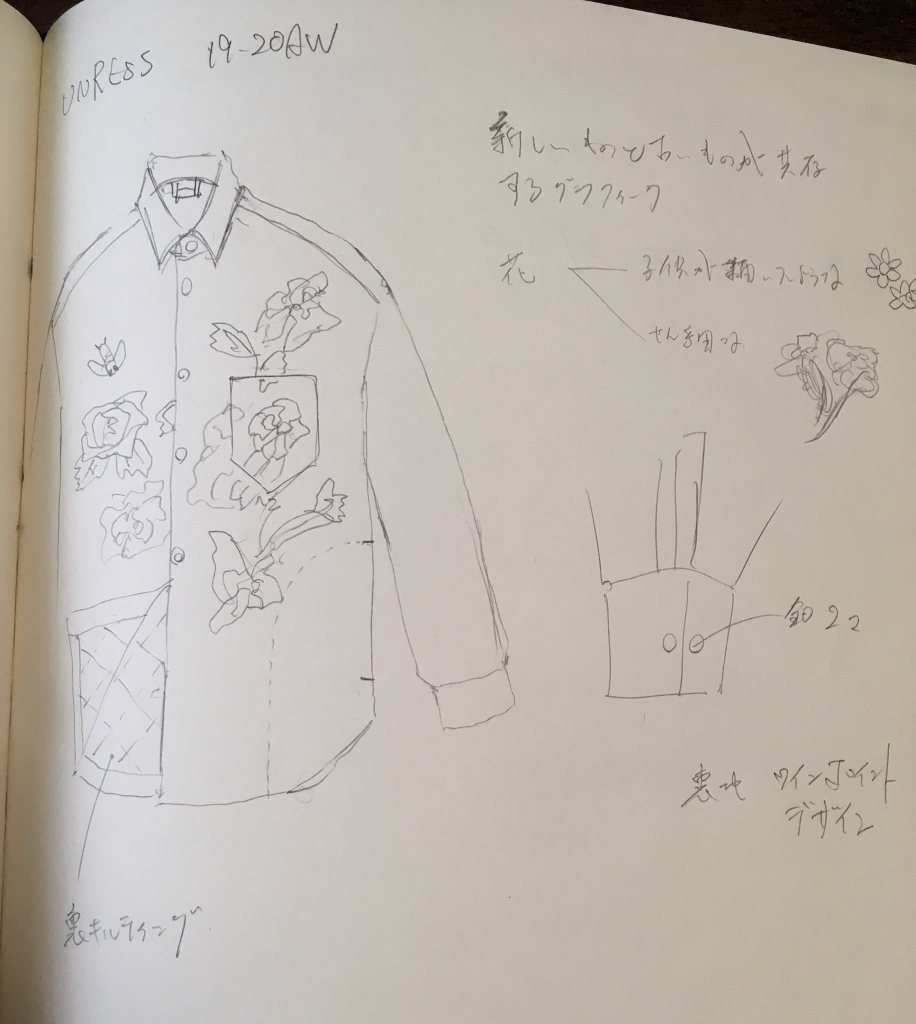 UNRESS 19-20AW
新しいものと古いものが共存
するグラフィーク
花
子供が描いたような
せん細な
釦 2コ
裏地 ツインJョイント
デザイン
裏キルティング